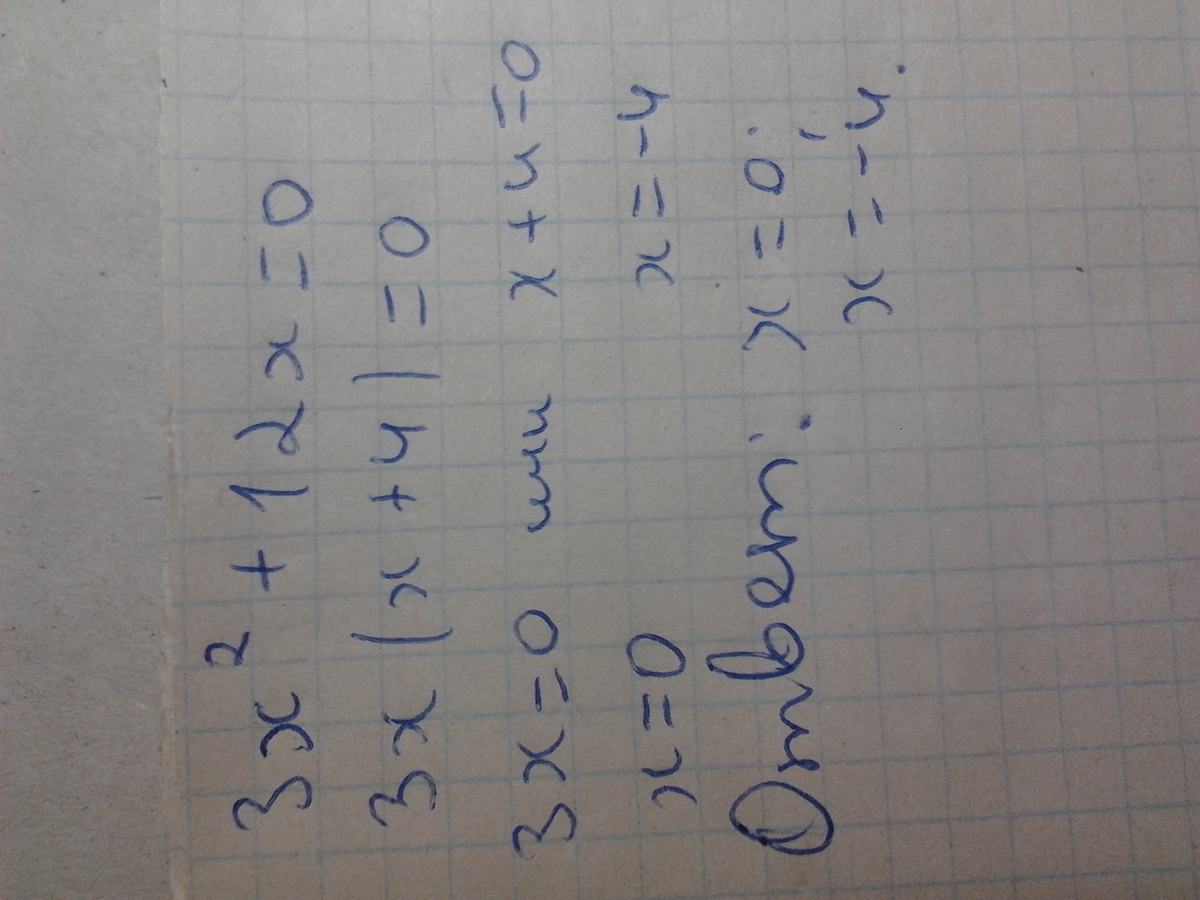 3x² + 12x = 0
3x (x + 4) = 0
3x = 0 или x + 4 = 0
x = 0 x = -4
Ответ: x = 0;
x = -4.